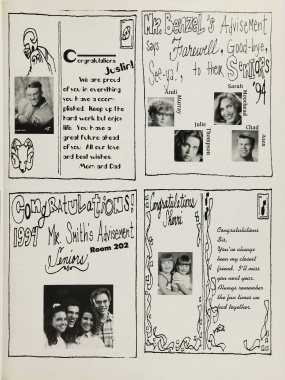 Congratulations
Justin!
We are proud
of you in everything
you have accom-
plished. Keep up the
hard work but enjoy
life. You have a
great future ahead
of you. All our love
and best wishes.
Mom and Dad
Mr. Benzel's Advisement
Says Farewell, Good-bye,
See-ya! to their Seniors
'94
Andi
Murray
Sarah
Julie
Thompson
Chad
CONGRATULATIONS!
1994 Mr. Smith's Advisement
Room 202
Seniors
Congratulations
Sherri
Congratulations
Sis,
You've always
been my closest
friend. I'll miss
you next year.
Always remember
the fun times we
had together.